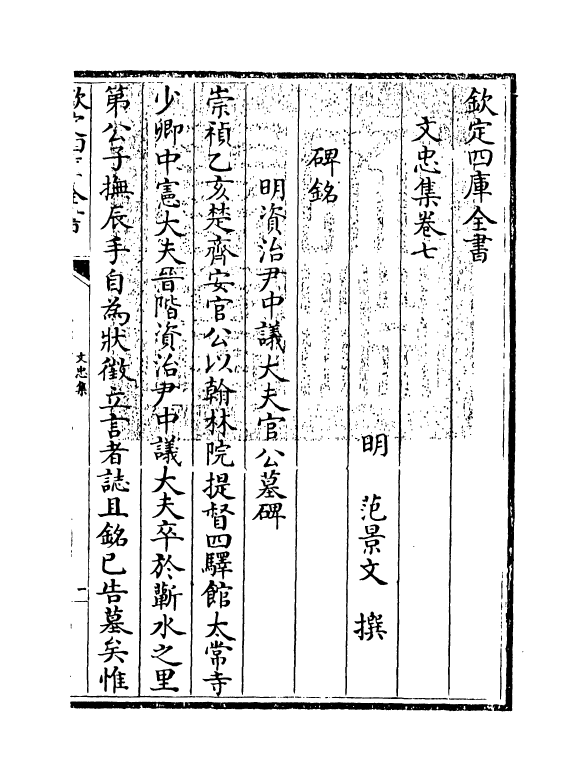 欽定四庫全書
文忠集卷七
明 范景文 撰
碑銘
明資治尹中議大夫官公墓碑
崇禎乙亥楚齊安官公以翰林院提督四驛館太常寺
少卿中憲大夫晉階資治尹中議大夫卒於蘄水之里
第公子撫辰手自為狀徵立言者誌且銘已告墓矣惟
欽定四庫全書
文忠集
一